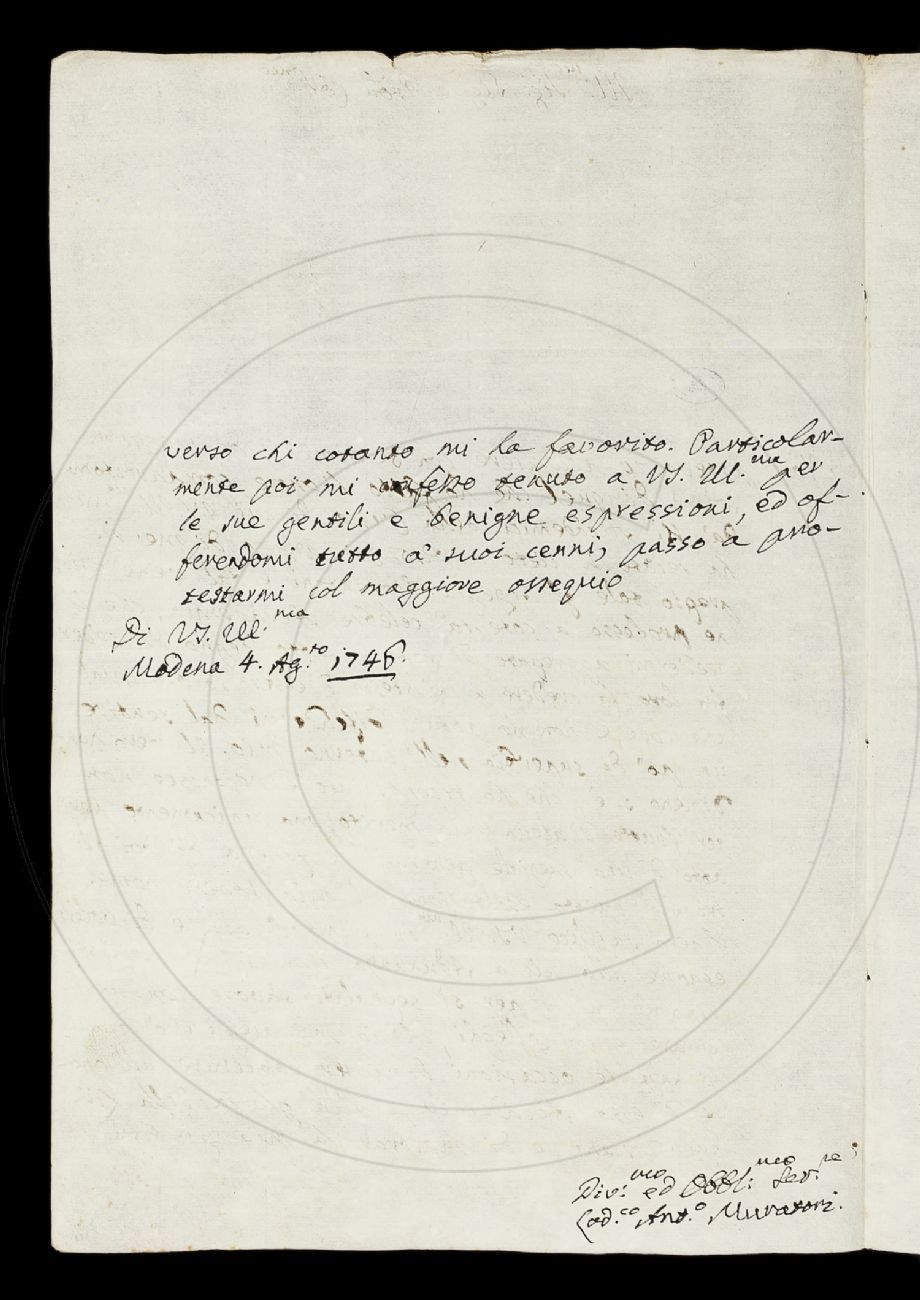 verso chi cotanto mi ha favorito. Particolar-
mente poi mi confesso tenuto a VS. Ill.ma per
le sue gentili e benigne espressioni, ed of-
ferendomi tutto a' suoi cenni, passo a pro-
testarmi col maggiore ossequio
Di VS. Ill.ma
Modena 4. Ag.to 1746.
Div.mo ed Obbl.mo Ser.re
Lod.co Ant.o Muratori.